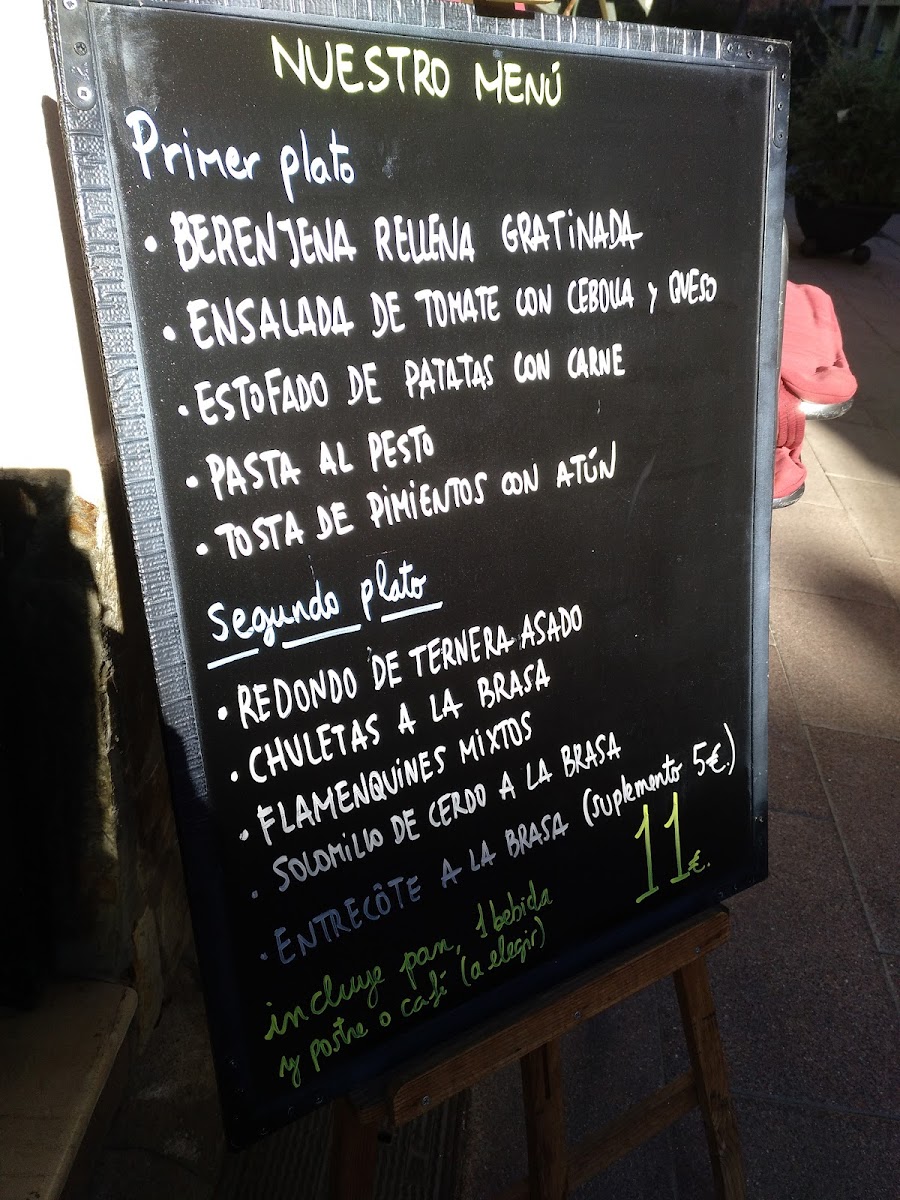 NUESTRO MENÚ
Primer plato
• BERENJENA RELLENA GRATINADA
• ENSALADA DE TOMATE CON CEBOLLA Y QUESO
• ESTOFADO DE PATATAS CON CARNE
• PASTA AL PESTO
• TOSTA DE PIMIENTOS CON ATÚN
Segundo plato
• REDONDO DE TERNERA ASADO
• CHULETAS A LA BRASA
• FLAMENQUINES MIXTOS
• SOLOMILLO DE CERDO A LA BRASA
• ENTRECÔTE A LA BRASA (suplemento 5€.)
11€.
incluye pan, 1 bebida
y postre o café (a elegir)